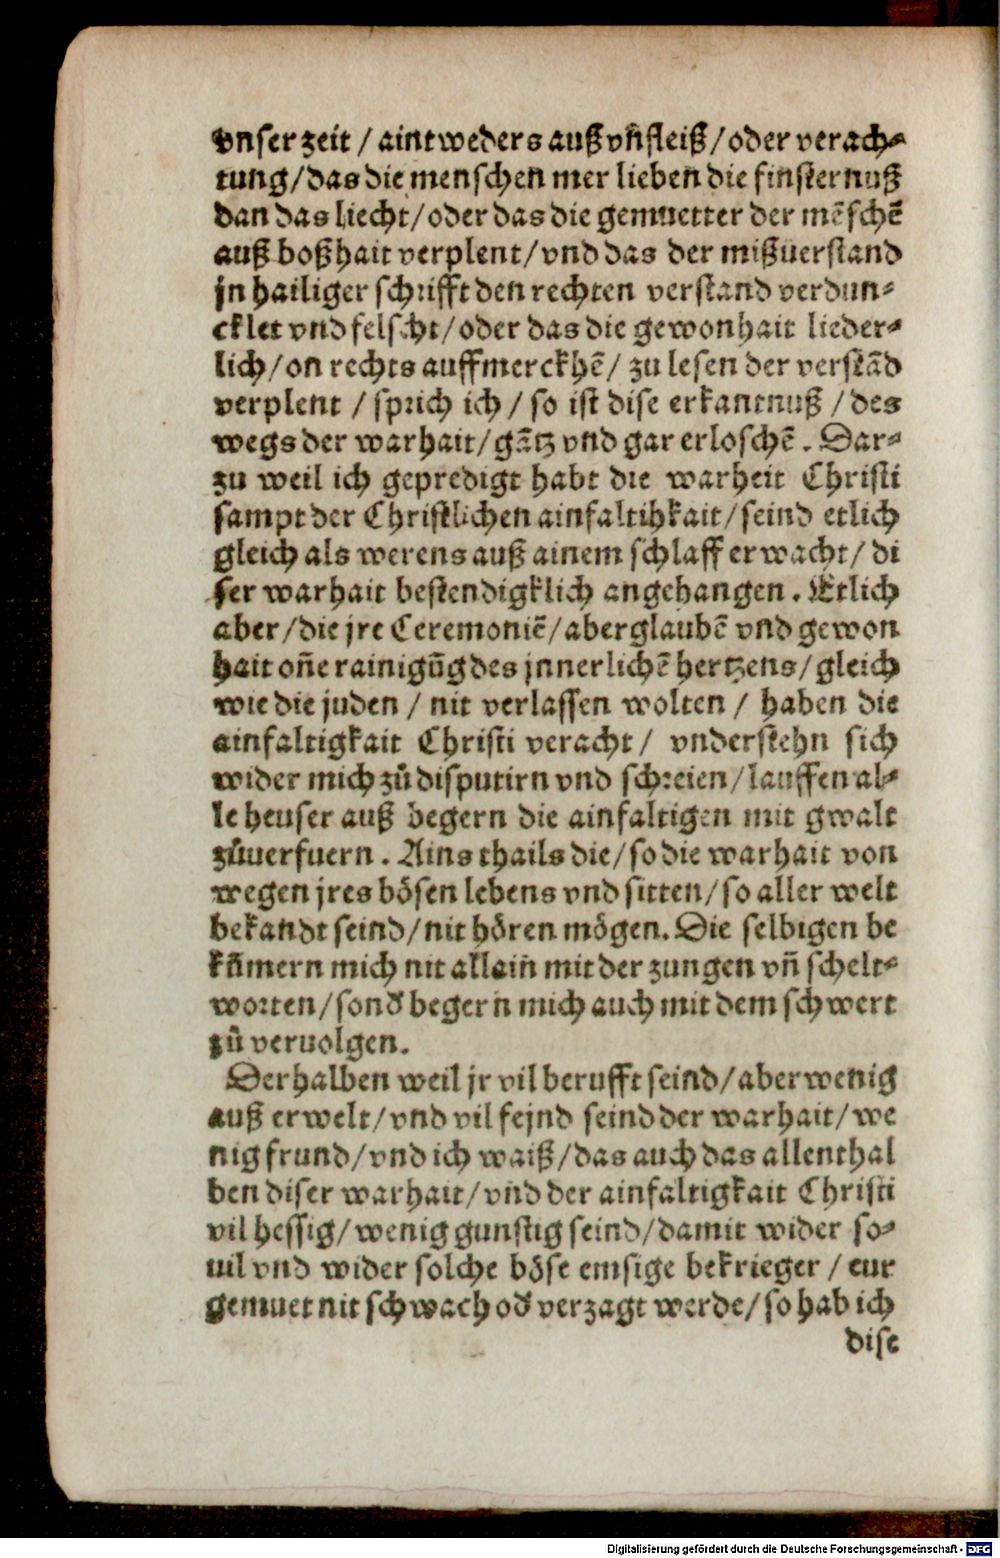 vnser zeit / aintweders auß vnfleiß / oder verach⸗
tung / das die menschen mer lieben die finsternuß
dan das liecht / oder das die gemuetter der mẽschẽ
auß boßhait verplent / vnd das der mißuerstand
jn hailiger schrifft den rechten verstand verdun⸗
cklet vnd felscht / oder das die gewonhait lieder⸗
lich / on rechts auffmerckhẽ / zu lesen der verstãd
verplent / sprich ich / so ist dise erkantnuß / des
wegs der warhait / gãtz vnd gar erloschẽ . Dar⸗
zu weil ich gepredigt habt die warheit Christi
sampt der Christlichen ainfaltihkait / seind etlich
gleich als werens auß ainem schlaff erwacht / di
ser warhait bestendigklich angehangen . Etlich
aber / die jre Ceremoniẽ / aberglaubẽ vnd gewon
hait oñe rainigũg des jnnerlichẽ hertzens / gleich
wie die juden / nit verlassen wolten / haben die
ainfaltigkait Christi veracht / vnderstehn sich
wider mich zů disputirn vnd schreien / lauffen al⸗
le heuser auß begern die ainfaltigen mit gwalt
zůuerfuern . Ains thails die / so die warhait von
wegen jres bösen lebens vnd sitten / so aller welt
bekandt seind / nit hören mögen . Die selbigen be
kũmern mich nit allain mit der zungen vñ schelt⸗
worten / sonď begern mich auch mit dem schwert
zů veruolgen .
Derhalben weil jr vil berufft seind / aber wenig
auß erwelt / vnd vil fejnd seind der warhait / we
nig frund / vnd ich waiß / das auch das allenthal
ben diser warhait / vnd der ainfaltigkait Christi
vil hessig / wenig gunstig seind / damit wider so⸗
uil vnd wider solche böse emsige bekrieger / eur
gemuet nit schwach oď verzagt werde / so hab ich
dise
Digitalisierung gefördert durch die Deutsche Forschungsgemeinschaft - DFG